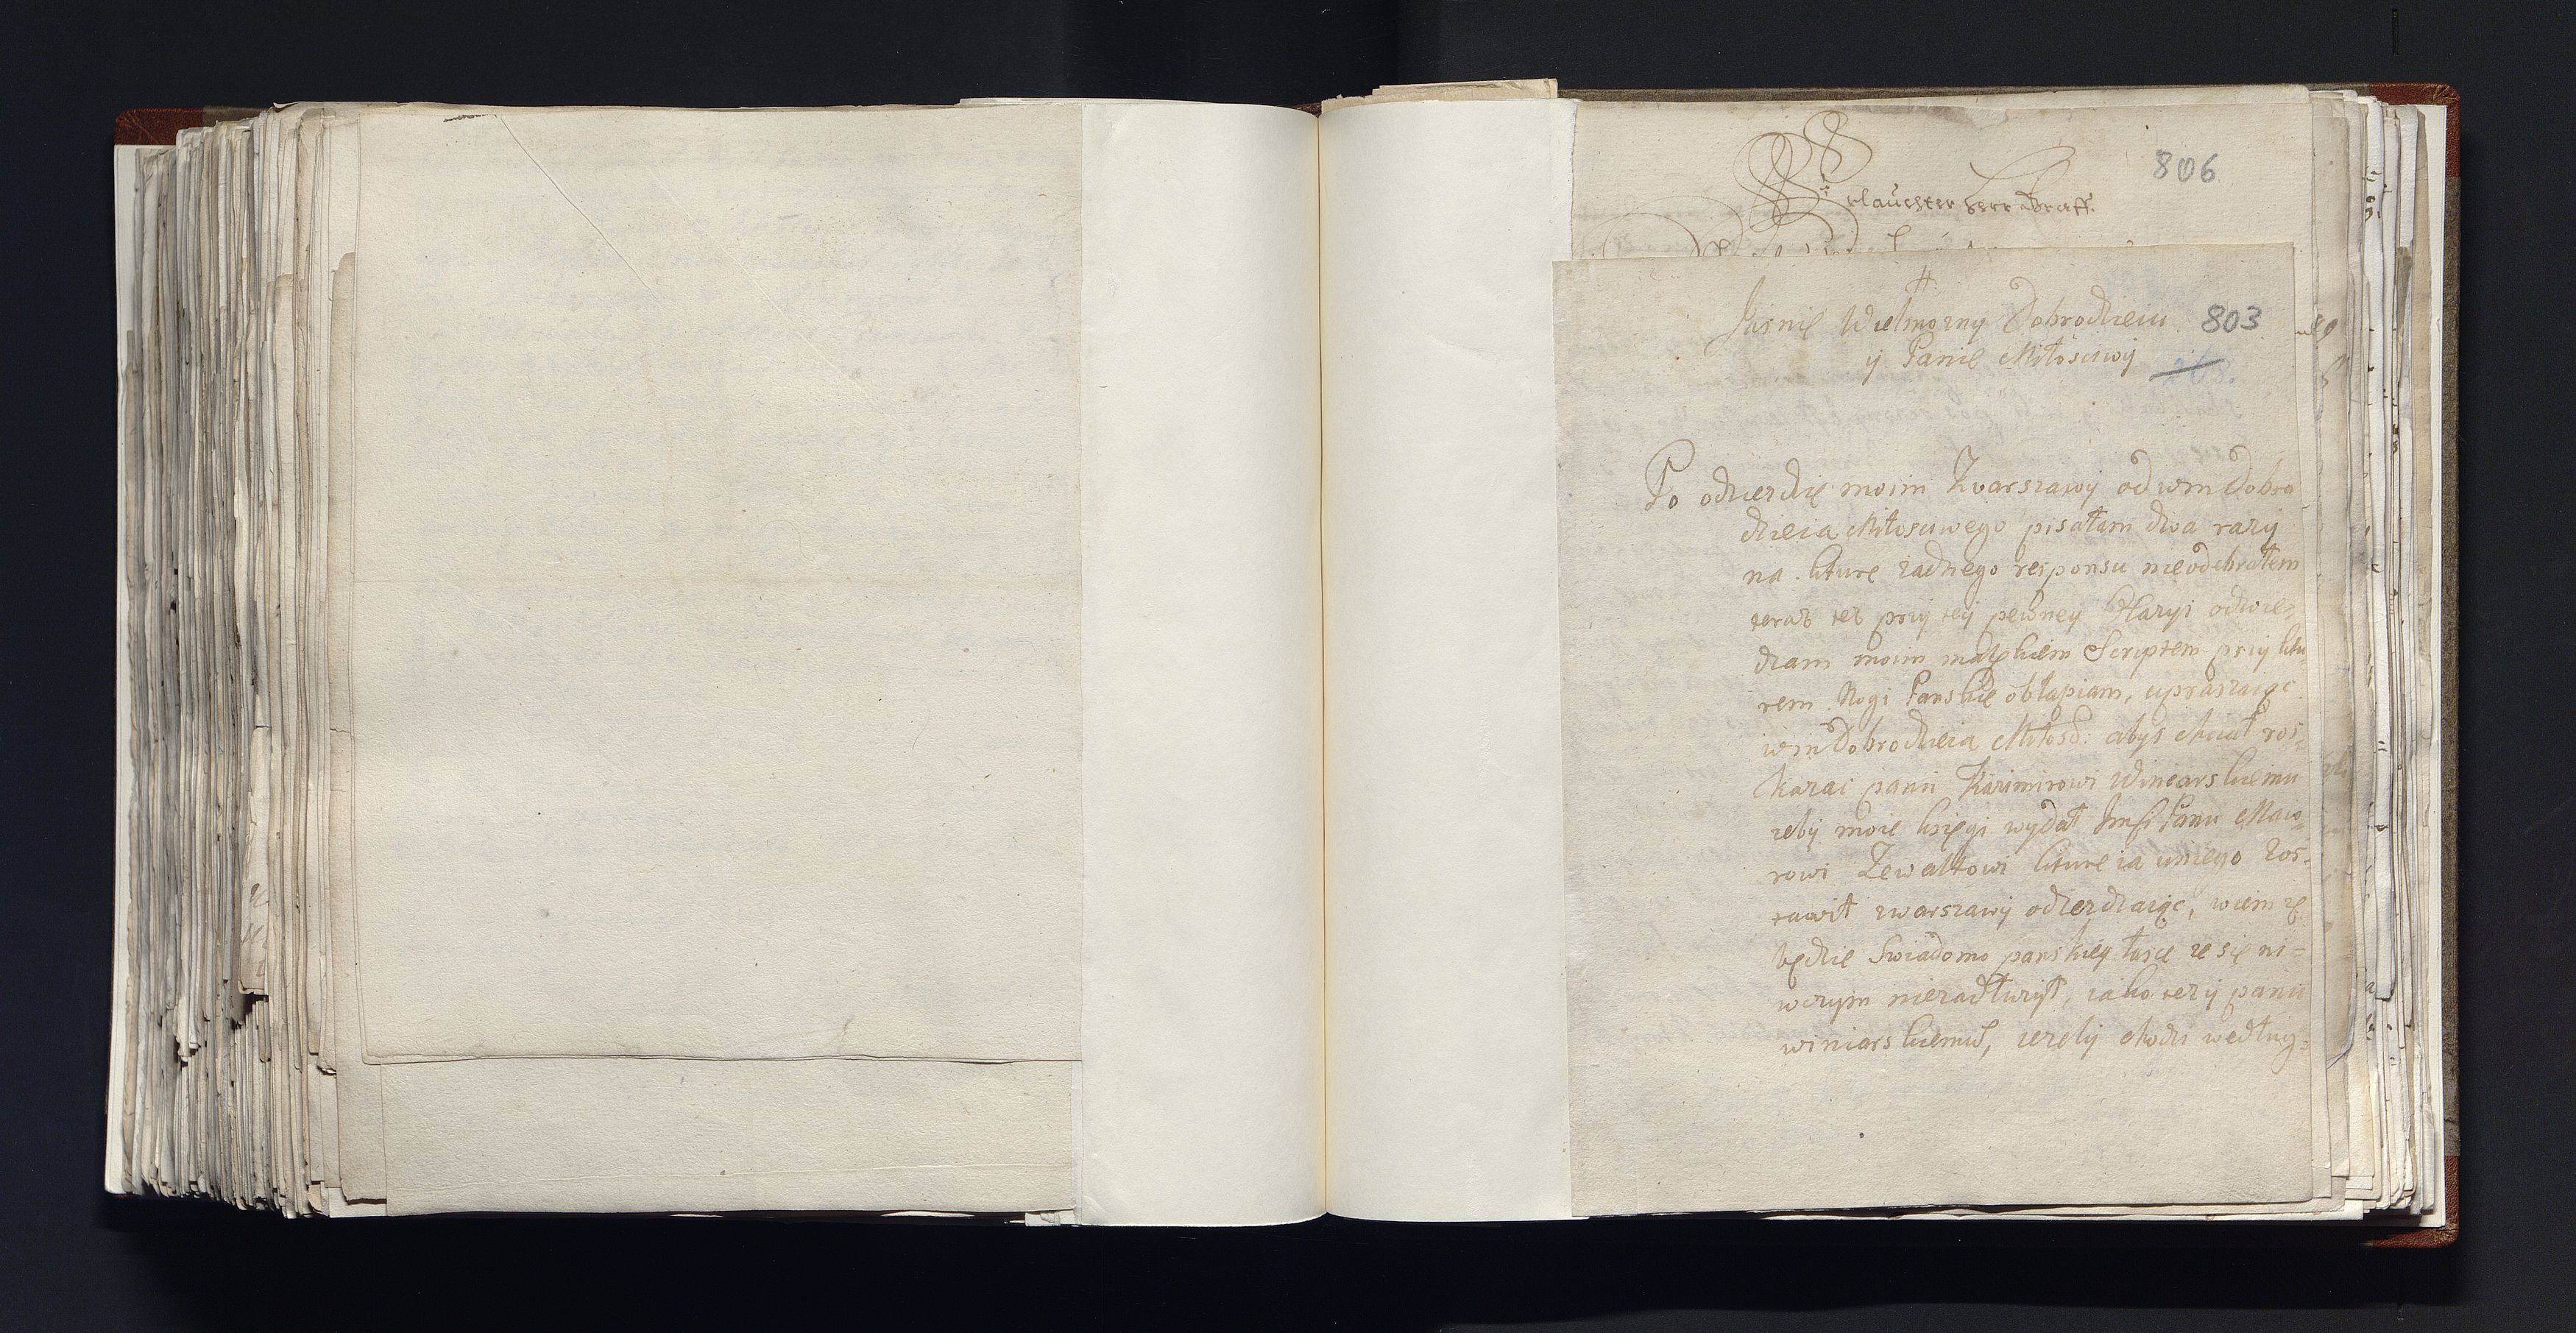 806
Erlauchter Herr Graff.
#
Jasnie Wielmozny Dobrodzieiu 803
y Panie Miłosciwy
268.
Po odiezdzie moim Zwarszawy od wm Dobro
dzieia Miłosciwego pisałem dwa razy
na kture zadnego responsu nieodebrałem
teraz tez przy tey pewney Staryi odwie=
dzam moim małykiem Scriptem przy ktu
rem Nogi Panskie obłapiam, upraszaiąc
wm Dobrodzieia Miłosc: abys chciał ros=
kazac panu Kazimirowi Winiarskiemu
zeby moie ksiegi wydał Jmsci Panu Maio=
rowi Zewaltowi kture ia uniego zos=
tawił zwarszawy odiezdzaiąc, wiem ze
będzie Swiadomo panskiey łasce ze się ni=
wczym niezadłuzył, iako tezy panu
winiarskiemu, iezely chodzi według=